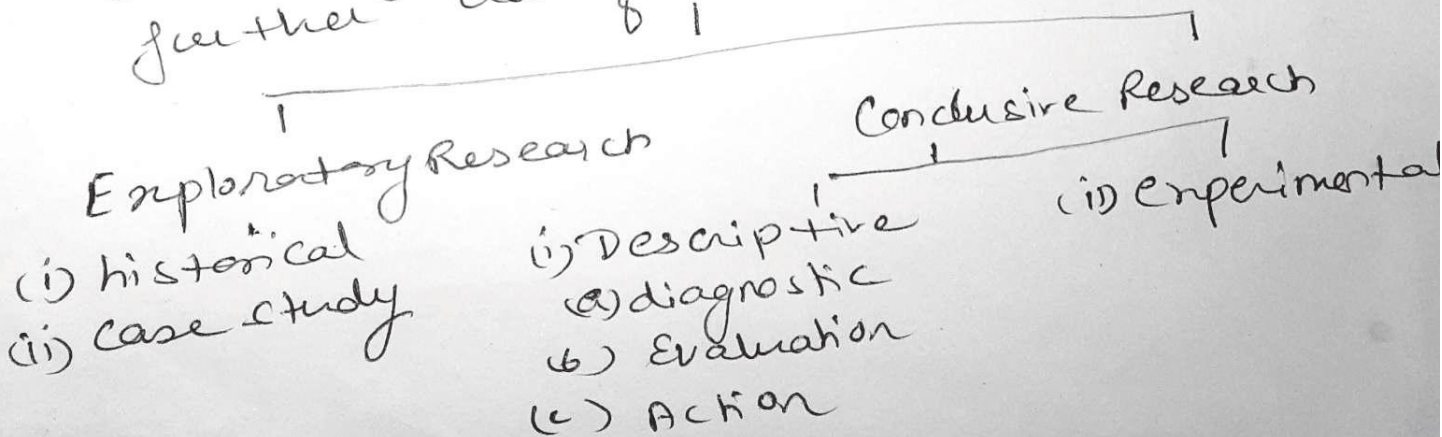 further
Exploratory Research
(i) historical
(ii) case study
Conclusive Research
(i) Descriptive
(a) diagnostic
(b) Evaluation
(c) Action
(ii) experimental